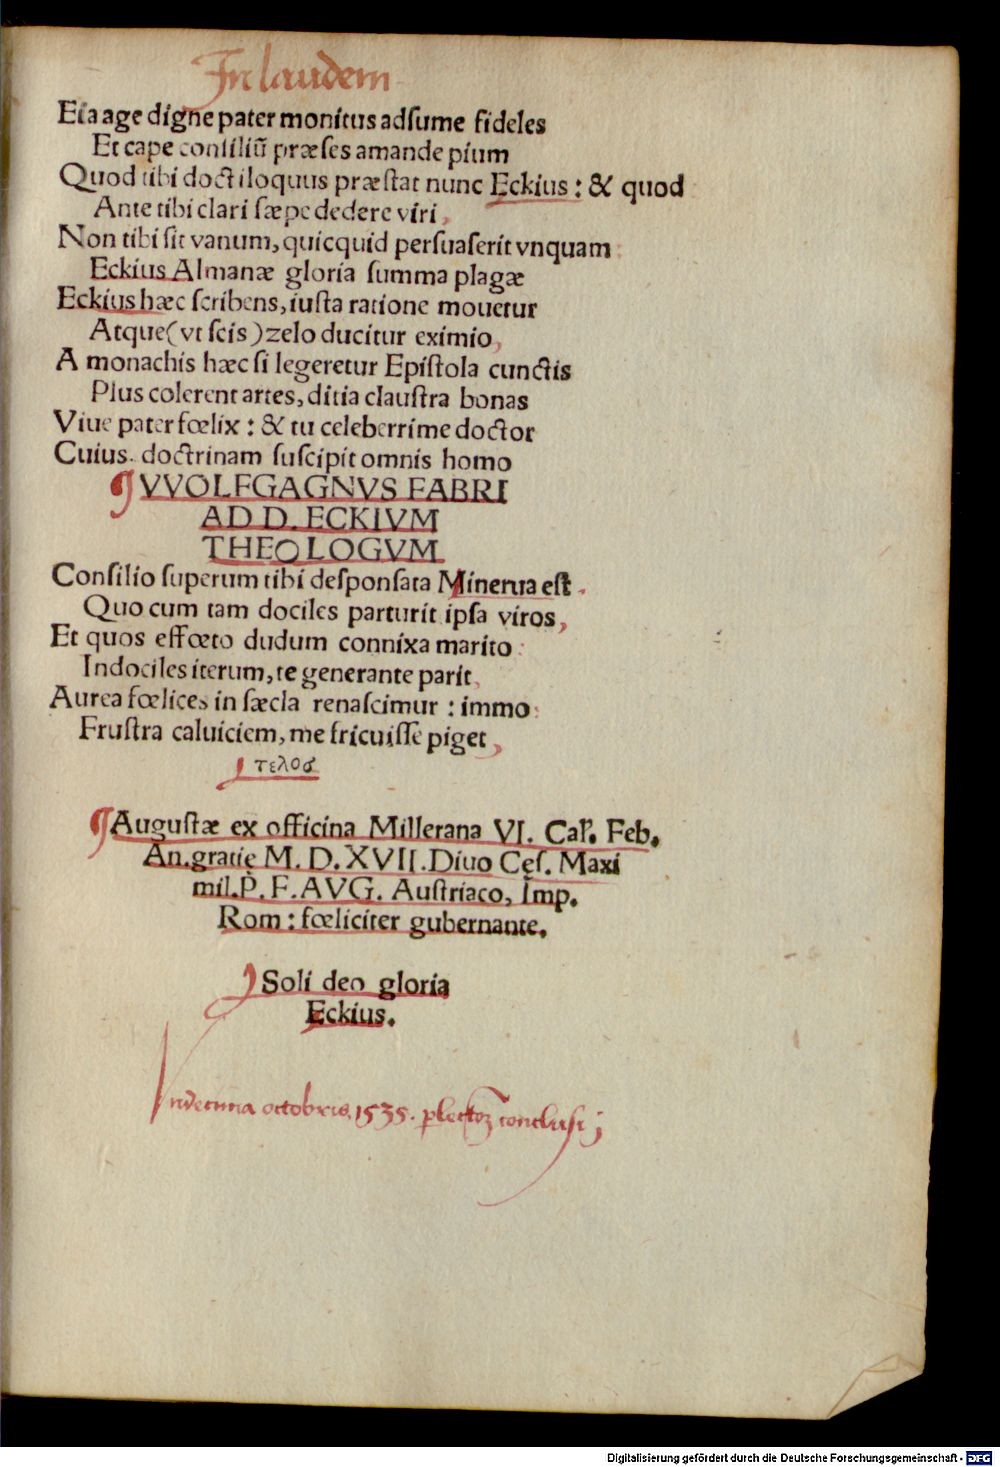 In laudem
Eia age digne pater monitus adſume fideles
Et cape conſiliū præſes amande pium
Quod tibi doctiloquus præſtat nunc Eckius : & quod
Ante tibi clari ſæpe dedere viri,
Non tibi ſit vanum, quicquid perſuaſerit vnquam
Eckius Almanæ gloria ſumma plagæ
Eckius hæc ſcribens, iuſta ratione mouetur
Atque (vt ſcis) zelo ducitur eximio,
A monachis hæc ſi legeretur Epiſtola cunctis
Plus colerent artes, ditia clauſtra bonas
Viue pater fœlix : & tu celeberrime doctor
Cuius doctrinam ſuſcipit omnis homo
¶ VVOLFGAGNVS FABRI
AD D. ECKIVM
THEOLOGVM
Conſilio ſuperum tibi deſponſata Minerua eſt.
Quo cum tam dociles parturit ipſa viros,
Et quos effœto dudum connixa marito :
Indociles iterum, te generante parit,
Aurea fœlices in ſæcla renaſcimur : immo
Fruſtra caluiciem, me fricuiſſe piget,
τελος
¶ Auguſtæ ex officina Millerana VI. Cal. Feb.
An. gratię M. D. XVII. Diuo Cęſ. Maxi
mil. P. F. AVG. Auſtriaco, Imp.
Rom : fœliciter gubernante.
Soli deo gloria
Eckius.
Vndecima octobris 1535. concluſi;
Digitalisierung gefördert durch die Deutsche Forschungsgemeinschaft - DFG